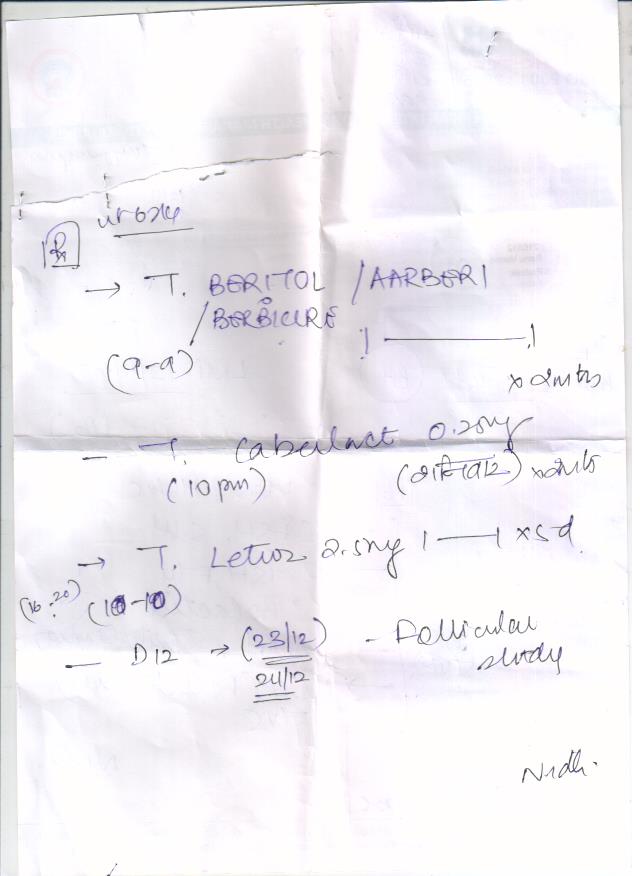 Rx
→ T. BERITOL / AARBERI
/ BERBICURE
1 ——— 1
(9-9)
x 2mths
- T. Cabeulact 0.25mg
(10 pm) (शनिवार) x 2mts
→ T. Letroz 2.5mg 1 — 1 x 5d.
(16-20) (10-10)
- D12 → (23/12) - Follicular
24/12 study
Nidhi.